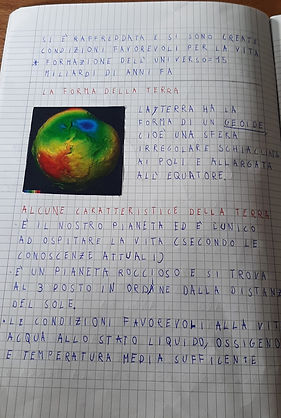 SI È RAFFREDDATA E SI SONO CREATE
CONDIZIONI FAVOREVOLI PER LA VITA
* FORMAZIONE DELL'UNIVERSO = 15
MILIARDI DI ANNI FA
LA FORMA DELLA TERRA
LA TERRA HA LA
FORMA DI UN GEOIDE,
CIOÈ UNA SFERA
IRREGOLARE SCHIACCIATA
AI POLI E ALLARGATA
ALL'EQUATORE.
ALCUNE CARATTERISTICE DELLA TERRA
È IL NOSTRO PIANETA ED È L'UNICO
AD OSPITARE LA VITA (SECONDO LE
CONOSCENZE ATTUALI)
· È UN PIANETA ROCCIOSO E SI TROVA
AL 3 POSTO IN ORDINE DALLA DISTANZ
DEL SOLE.
· LE CONDIZIONI FAVOREVOLI ALLA VIT
ACQUA ALLO STATO LIQUIDO, OSSIGENO
E TEMPERATURA MEDIA SUFFICENTE